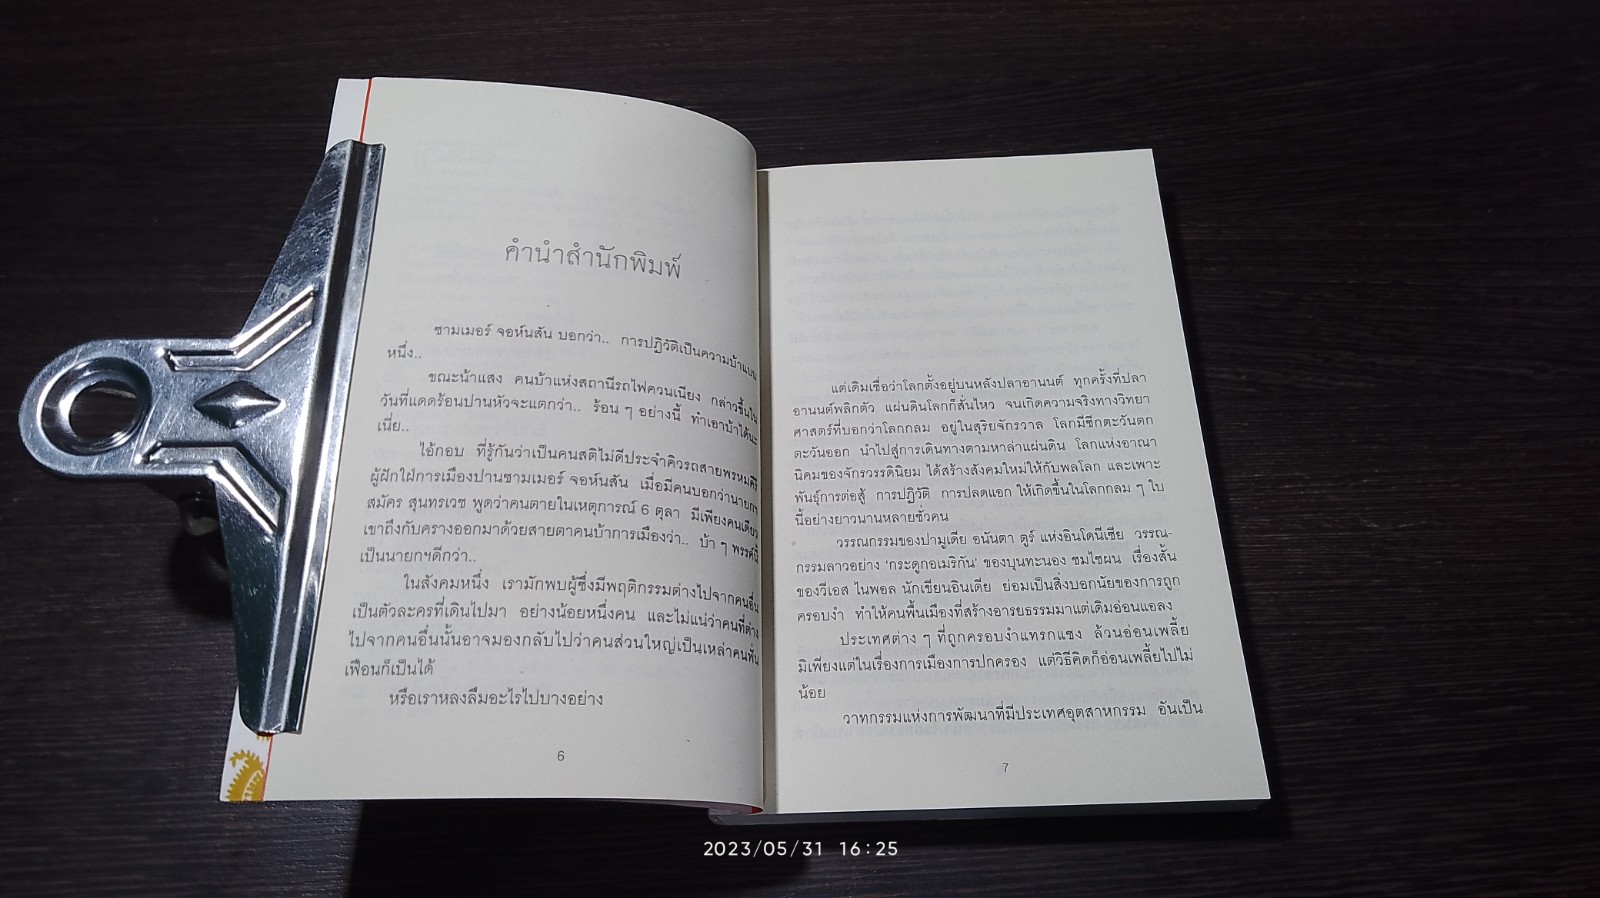 คำนำสำนักพิมพ์
ซามเมอร์ จอห์นสัน บอกว่า.. การปฏิวัติเป็นความบ้าแบบ
หนึ่ง..
ขณะน้าแสง คนบ้าแห่งสถานีรถไฟควนเนียง กล่าวขึ้นใน
วันที่แดดร้อนปานหัวจะแตกว่า.. ร้อน ๆ อย่างนี้ ทำเอาบ้าได้นะ
เนี่ย..
ไอ้กอบ ที่รู้กันว่าเป็นคนสติไม่ดีประจำคิวรถสายพรหมคีรี
ผู้ฝักใฝ่การเมืองปานซามเมอร์ จอห์นสัน เมื่อมีคนบอกว่านายกฯ
สมัคร สุนทรเวช พูดว่าคนตายในเหตุการณ์ 6 ตุลา มีเพียงคนเดียว
เขาถึงกับครางออกมาด้วยสายตาคนบ้าการเมืองว่า.. บ้า ๆ พรรค์นี้
เป็นนายกฯดีกว่า..
ในสังคมหนึ่ง เรามักพบผู้ซึ่งมีพฤติกรรมต่างไปจากคนอื่น
เป็นตัวละครที่เดินไปมา อย่างน้อยหนึ่งคน และไม่แน่ว่าคนที่ต่าง
ไปจากคนอื่นนั้นอาจมองกลับไปว่าคนส่วนใหญ่เป็นเหล่าคนฟั่น
เฟือนก็เป็นได้
หรือเราหลงลืมอะไรไปบางอย่าง
6
แต่เดิมเชื่อว่าโลกตั้งอยู่บนหลังปลาอานนต์ ทุกครั้งที่ปลา
อานนต์พลิกตัว แผ่นดินโลกก็สั่นไหว จนเกิดความจริงทางวิทยา
ศาสตร์ที่บอกว่าโลกกลม อยู่ในสุริยจักรวาล โลกมีซีกตะวันตก
ตะวันออก นำไปสู่การเดินทางตามหาล่าแผ่นดิน โลกแห่งอาณา
นิคมของจักรวรรดินิยม ได้สร้างสังคมใหม่ให้กับพลโลก และเพาะ
พันธุ์การต่อสู้ การปฏิวัติ การปลดแอก ให้เกิดขึ้นในโลกกลม ๆ ใบ
นี้อย่างยาวนานหลายชั่วคน
วรรณกรรมของปามูเดีย อนันตา ตูร์ แห่งอินโดนีเซีย วรรณ-
กรรมลาวอย่าง 'กระดูกอเมริกัน' ของบุนทะนอง ซมไชผน เรื่องสั้น
ของวีเอส ไนพอล นักเขียนอินเดีย ย่อมเป็นสิ่งบอกนัยของการถูก
ครอบงำ ทำให้คนพื้นเมืองที่สร้างอารยธรรมมาแต่เดิมอ่อนแอลง
ประเทศต่าง ๆ ที่ถูกครอบงำแทรกแซง ล้วนอ่อนเพลี้ย
มิเพียงแต่ในเรื่องการเมืองการปกครอง แต่วิธีคิดก็อ่อนเพลี้ยไปไม่
น้อย
วาทกรรมแห่งการพัฒนาที่มีประเทศอุตสาหกรรม อันเป็น
7
2023/05/31 16:25